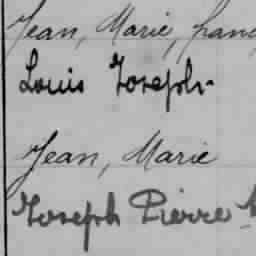 Jean, Marie, franç
Louis Joseph-
Jean, Marie
Joseph Pierre